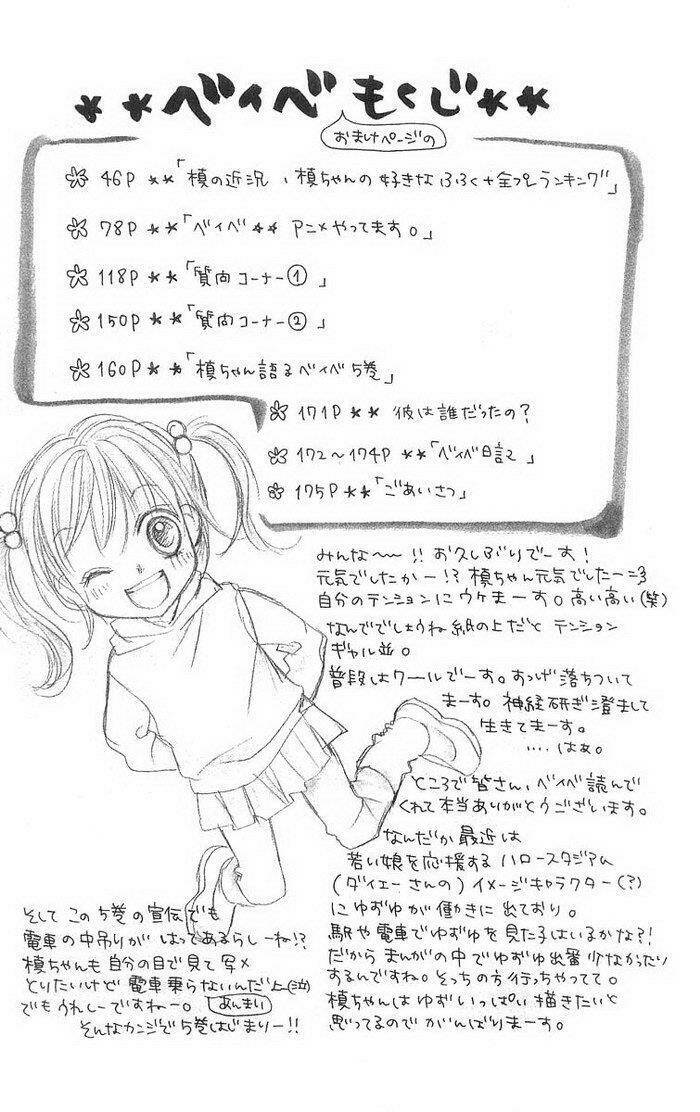 **ベイベ もくじ**
おまけページの
46P **「槙の近況、槙ちゃんの好きなふく+全プレランキング」
78P **「ベイベ** アニメやってます。」
118P **「質問コーナー①」
150P **「質問コーナー②」
160P **「槙ちゃん語るベイベ5巻」
171P ** 彼は誰だったの?
172〜174P **「ベイベ日記」
175P **「ごあいさつ」
みんな〜!! お久しぶりでーす!
元気でしたかー!? 槙ちゃん元気でしたー
自分のテンションにウケまーす。高い高い(笑)
なんででしょうね 紙の上だと テンション
ギャル並。
普段はクールでーす。すっげ落ちついて
まーす。神経研ぎ澄まして
生きてまーす。
‥‥はぁ。
ところで皆さん、ベイベ読んで
くれて本当ありがとうございます。
なんだか最近は
若い娘を応援する ハロースタジアム
(ダイエーさんの) イメージキャラクター(?)
にゆずゆが働きに出ており。
駅や電車でゆずゆを見た子はいるかな?!
だから まんがの中でゆずゆ出番少なかったり
するんですね。そっちの方行っちゃってて。
槙ちゃんは ゆずいっぱい描きたいと
思ってるので がんばりまーす。
そして この5巻の宣伝でも
電車の中吊りが はってあるらしーね!?
槙ちゃんも 自分の目で見て 写メ
とりたいけど 電車乗らないんだよ(泣)
でもうれしーですねー。 あんまい
そんなカンジで5巻はじまりー!!